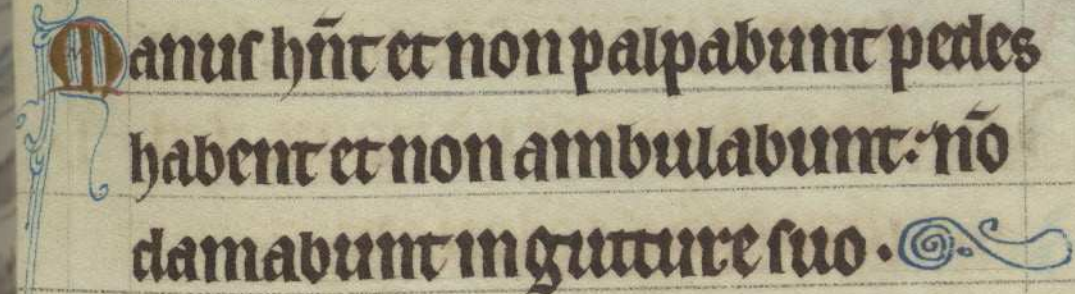 Manus hn̄t et non palpabunt pedes
habent et non ambulabunt: nō
clamabunt in gutture suo.